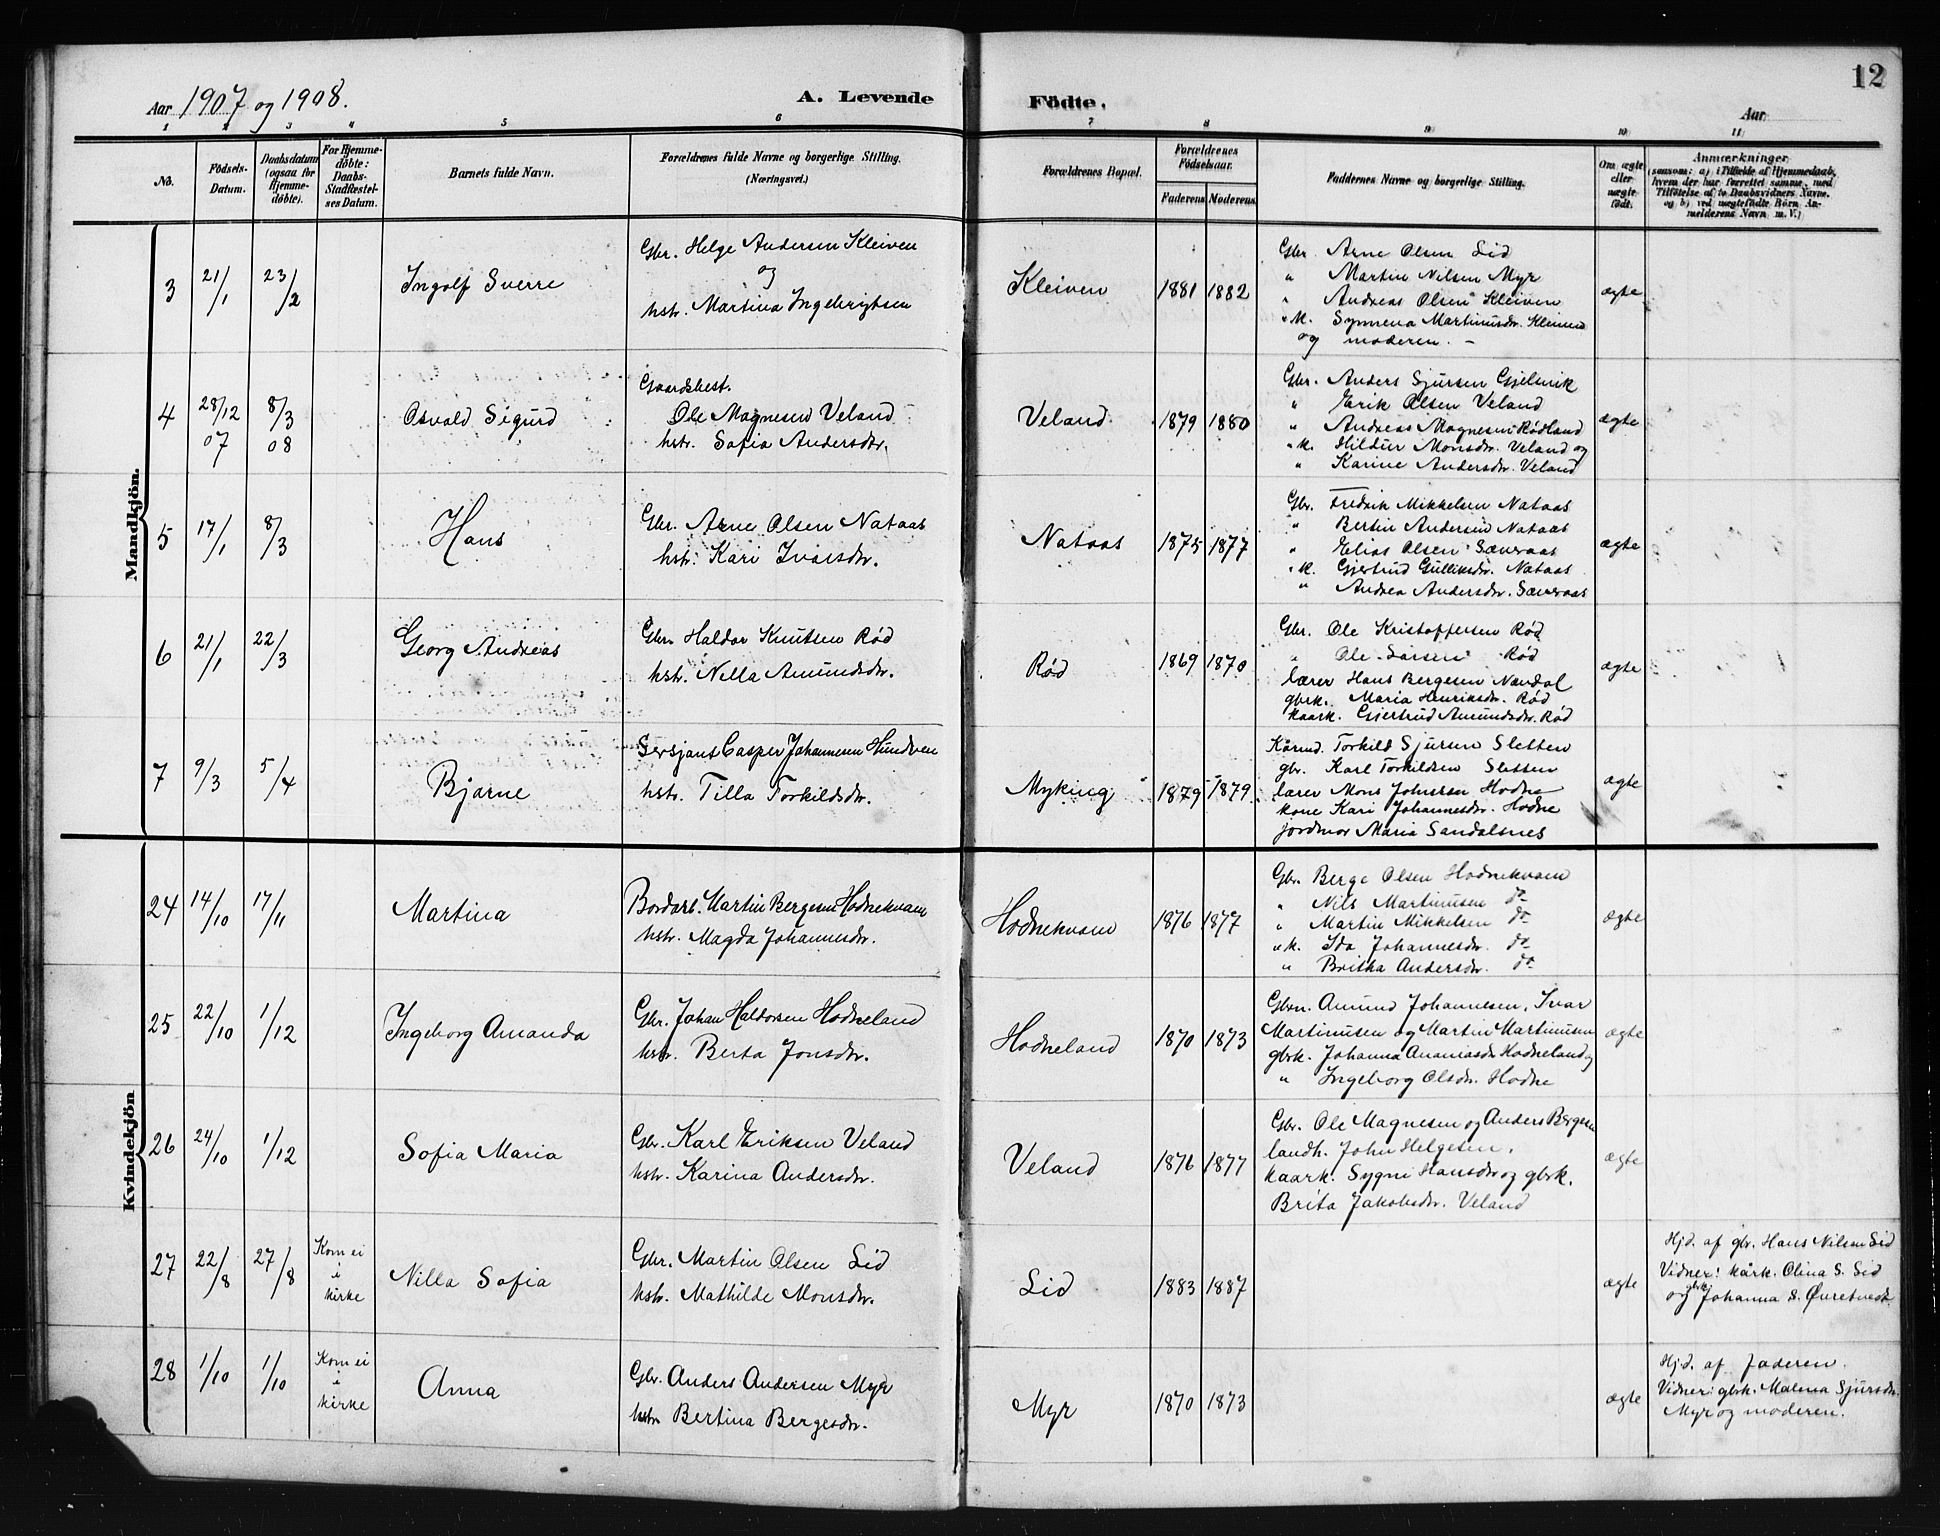 12
Aar 1907 og 1908.
A. Levende Födte.
Aar
1 2 3 4 5 6 7 8 9 10 11
No.
Födsels-Datum.
Daabsdatum (ogsaa for Hjemme-döbte).
For Hjemme-döbte: Daabs-Stadfæstel-ses Datum.
Barnets fulde Navn.
Forældrenes fulde Navne og borgerlige Stilling. (Næringsvei.)
Forældrenes Bopæl.
Forældrenes Födselsaar.
Faderens Moderens
Faddernes Navne og borgerlige Stilling.
Om ægte eller uægte födt.
Anmærkninger
(saasom: a) i Tilfælde af Hjemmedaab, hvem der har forrettet samme, med Tilföielse af to Daabsvidners Navne, og b) ved uægtefödte Börn An-melderens Navn m. V.)
Mandkjön.
3 21/1 23/2 Ingolf Sverre
Gbr. Helge Andersen Kleiven
og
hstr. Martina Ingebrigtsen
Kleiven 1881 1882
Gbr. Arne Olsen Lid
" Martin Nilsen Myr
" Andreas Olsen Kleiven
"k. Synneva Martinusdr. Kleiven
og moderen. –
ægte
4 28/12 07 8/3 08 Osvald Sigurd
Gaardsbest.
Ole Magnesen Veland
hstr. Sofia Andersdtr.
Veland 1879 1880
Gbr. Anders Sjursen Gjelsvik
" Erik Olsen Veland
" Andreas Magnesen Rødland
"k. Hildur Monsdr. Veland og
" Karine Andersdr. Veland
ægte
5 17/1 8/3 Hans
Gbr. Arne Olsen Nataas
hstr. Kari Ivarsdr.
Nataas 1875 1877
Gbr. Fredrik Mikkelsen Nataas
" Bertin Andersen Nataas
" Elias Olsen Sæveraas
"k. Gjertrud Gulliksdr. Nataas
" Andrea Andersdr. Sæveraas
ægte
6 21/1 22/3 Georg Andreas
Gbr. Haldor Knutsen Rød
hstr. Nilla Amundsdr.
Rød 1869 1870
Gbr. Ole Kristoffersen Rød
" Ole Larsen Rød
lærer Hans Bergesen Nævdal
gbrk. Maria Henriksdr. Rød
kaark. Gjertrud Amundsdr. Rød
ægte
7 9/3 5/4 Bjarne
Sersjant Casper Johannesen Hundven
hstr. Tilla Torkildsdr.
Myking 1879 1879
Kårmd. Torkild Sjursen Sletten
gbr. Karl Torkildsen Sletten
lærer Mons Johnsen Hodne
kone Kari Johannesdr. Hodne
jordmor Maria Sandalsnes
ægte
Kvindekjön
24 14/10 17/11 Martina
Bordarb. Martin Bergesen Hodnekvam
hstr. Magda Johannesdr.
Hodnekvam 1876 1877
Gbr. Berge Olsen Hodnekvam
" Nils Martinusen do
" Martin Mikkelsen do
"k. Ida Johannesdr. do
" Britha Andersdr. do
ægte
25 22/10 1/12 Ingeborg Amanda
Gbr. Johan Haldorsen Hodneland
hstr. Berta Jonsdr.
Hodneland 1870 1873
Gbrn. Amund Johannesen, Ivar
Martinusen og Martin Martinusen
gbrk. Johanna Ananiasdr Hodneland og
" Ingeborg Olsdr. Hodne
ægte
26 24/10 1/12 Sofia Maria
Gbr. Karl Eriksen Veland
hstr. Karina Andersdr.
Veland 1876 1877
Gbr. Ole Magnesen og Anders Bergesen
landh. John Helgesen,
kaark. Sygni Hansdr og gbrk.
Brita Jakobsdr. Veland
ægte
27 22/8 27/8 Kom ei i kirke Nilla Sofia
Gbr. Martin Olsen Lid
hstr. Mathilde Monsdr.
Lid 1883 1887
ægte
Hjd. af gbr. Hans Nilsen Lid
Vidner: kårk. Olina S. Lid
og gbrk Johanna S. Øvretvedt.
28 1/10 1/10 Kom ei i kirke Anna
Gbr. Anders Andersen Myr
hstr Bertina Bergesdr.
Myr 1870 1873
ægte
Hjd. af faderen.
Vidner: gbrk. Malena Sjursdr.
Myr og moderen.